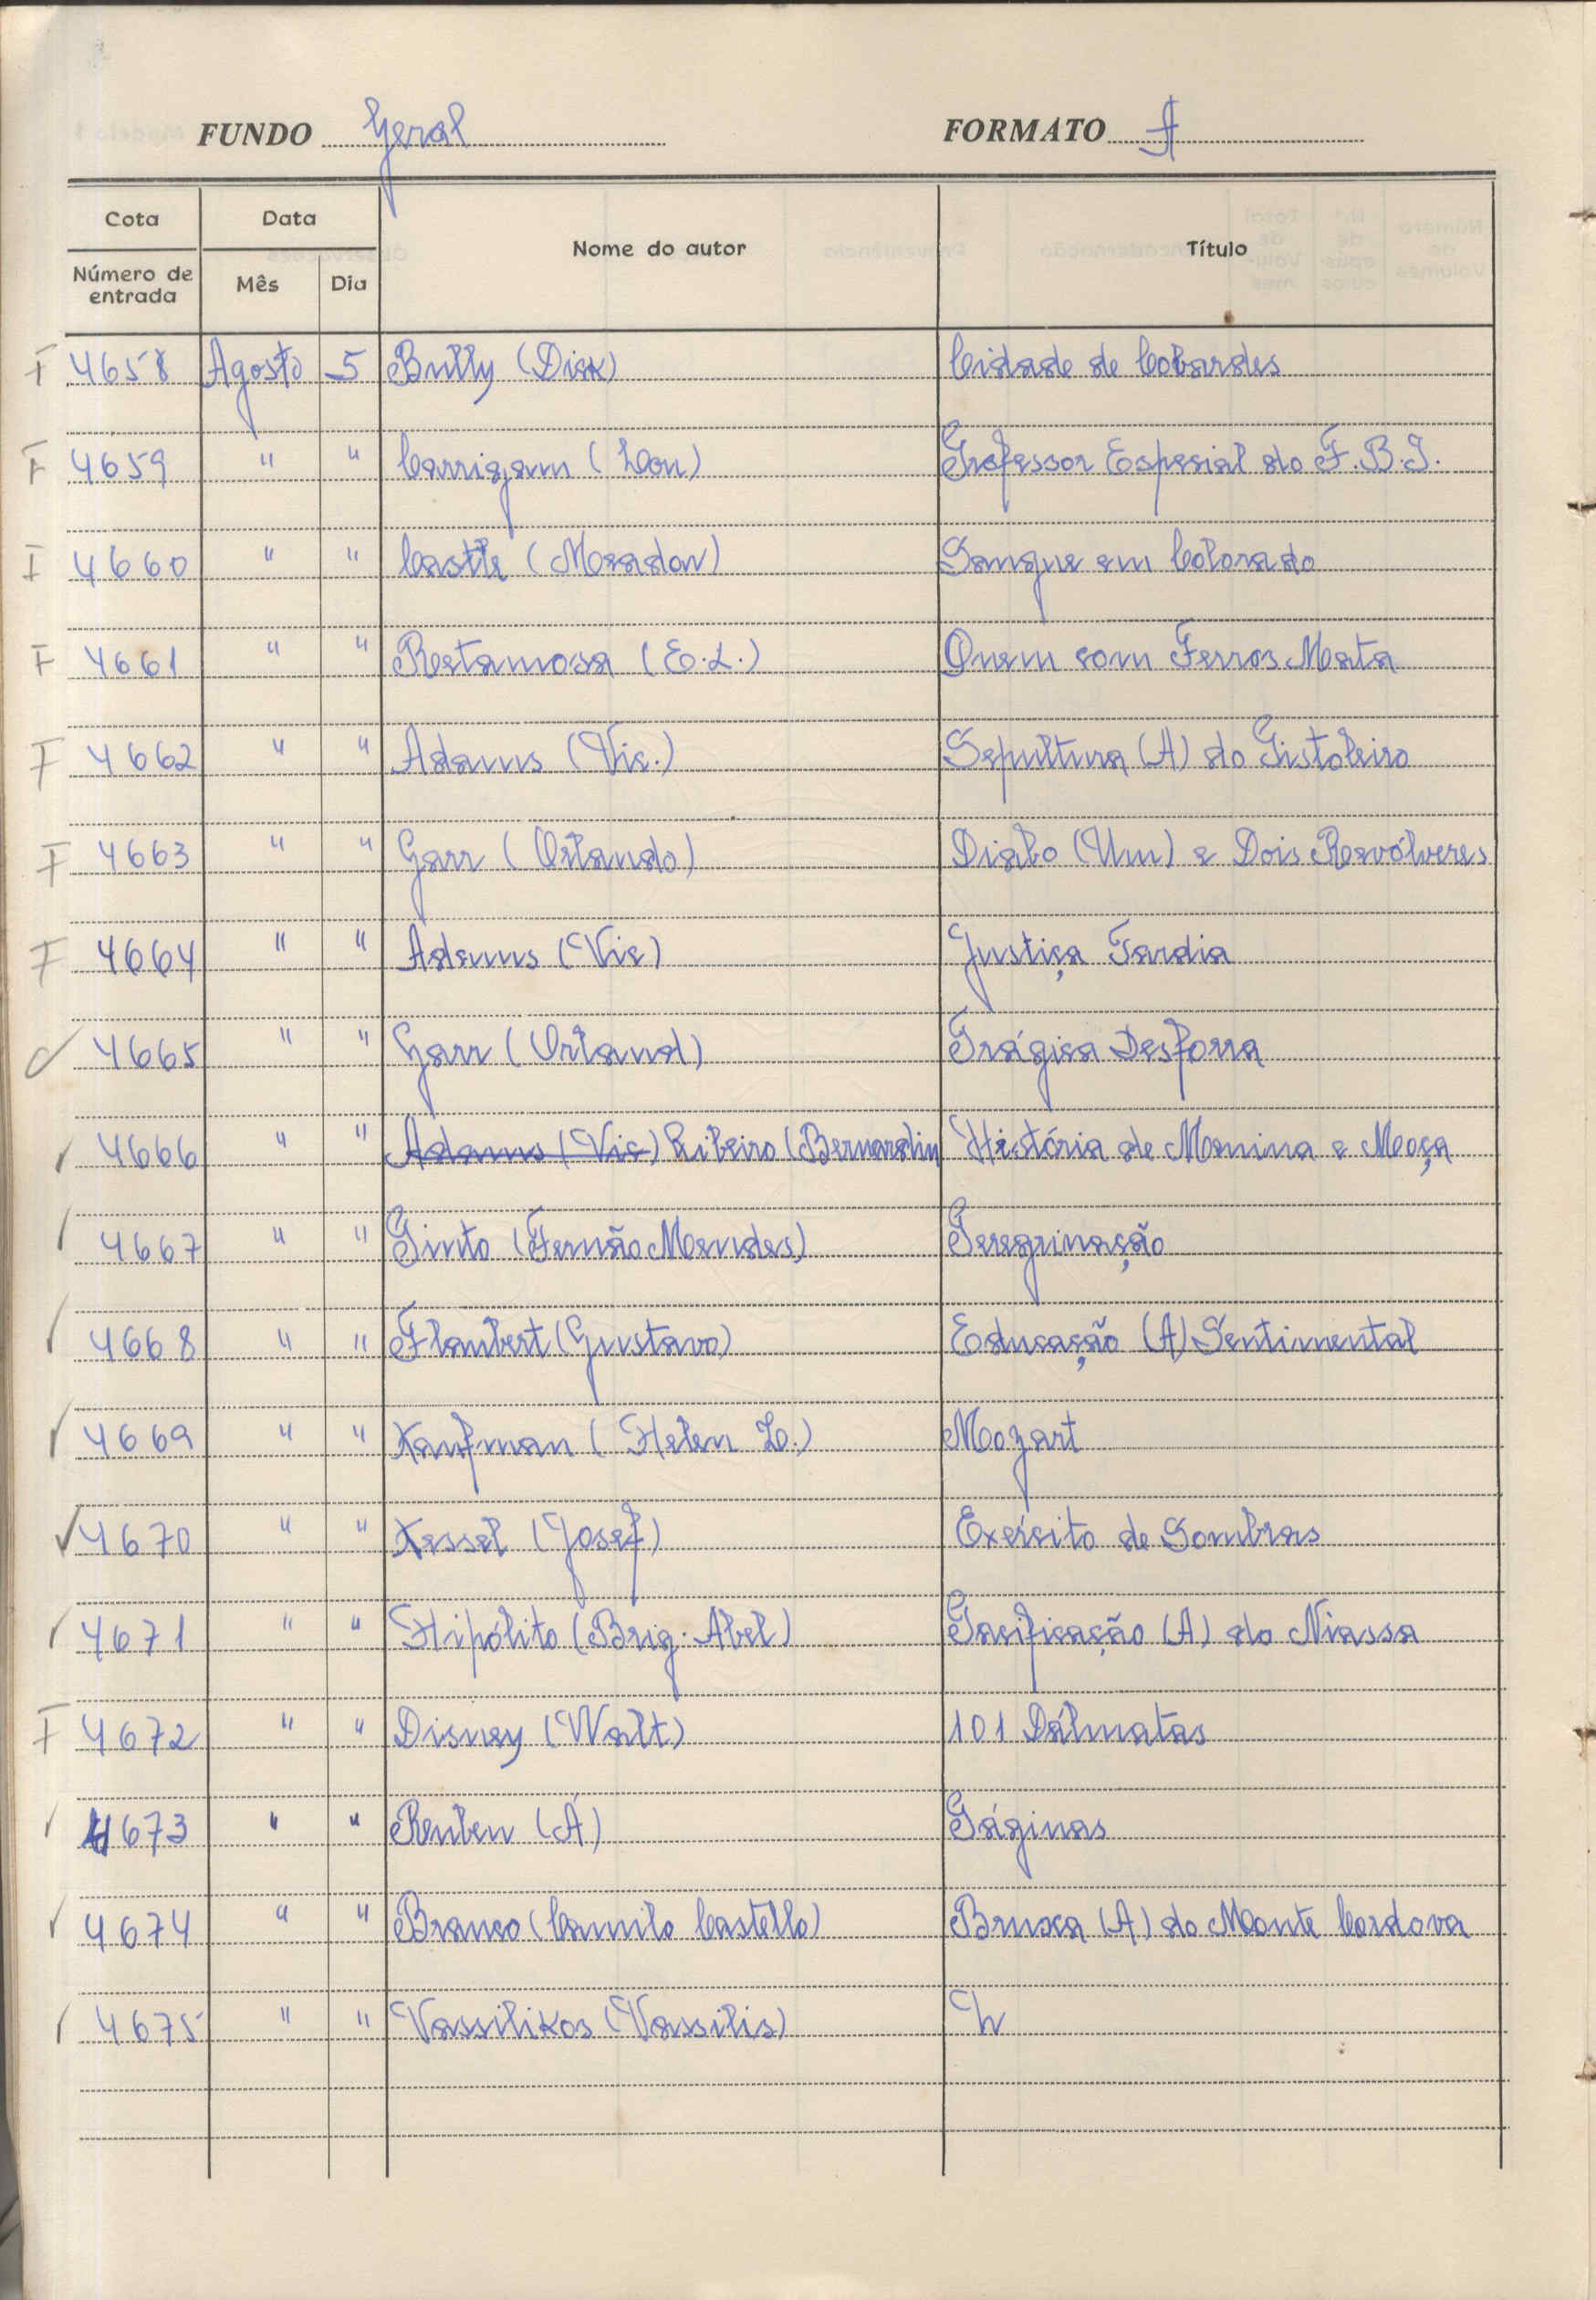 FUNDO Geral FORMATO A
Cota Data Nome do autor Título
Número de entrada Mês Dia
F 4658 Agosto 5 Bully (Dick) Cidade de Cobardes
F 4659 " " Carrigam (Lou) Professor Especial do F.B.I.
F 4660 " " Castle (Meadow) Sangue em Colorado
F 4661 " " Retamosa (E.L.) Quem com Ferros Mata
F 4662 " " Adams (Vic.) Sepultura (A) do Pistoleiro
F 4663 " " Garr (Orlando) Diabo (Um) e Dois Revólveres
F 4664 " " Adams (Vic) Justiça Tardia
4665 " " Garr (Orland) Trágica Desforra
✓ 4666 " " Adams (Vic) Ribeiro (Bernardin História de Menina e Moça
✓ 4667 " " Pinto (Fernão Mendes) Peregrinação
✓ 4668 " " Flaubert (Gustavo) Educação (A) Sentimental
✓ 4669 " " Kaufman (Helen L.) Mozart
✓ 4670 " " Kessel (Josef) Exército de Sombras
✓ 4671 " " Hipólito (Brig. Abel) Pacificação (A) do Niassa
F 4672 " " Disney (Walt) 101 Dálmatas
✓ 4673 " " Reuben (A) Páginas
✓ 4674 " " Branco (Camilo Castello) Bruxa (A) do Monte Cordova
✓ 4675 " " Vassilikos (Vassilis)